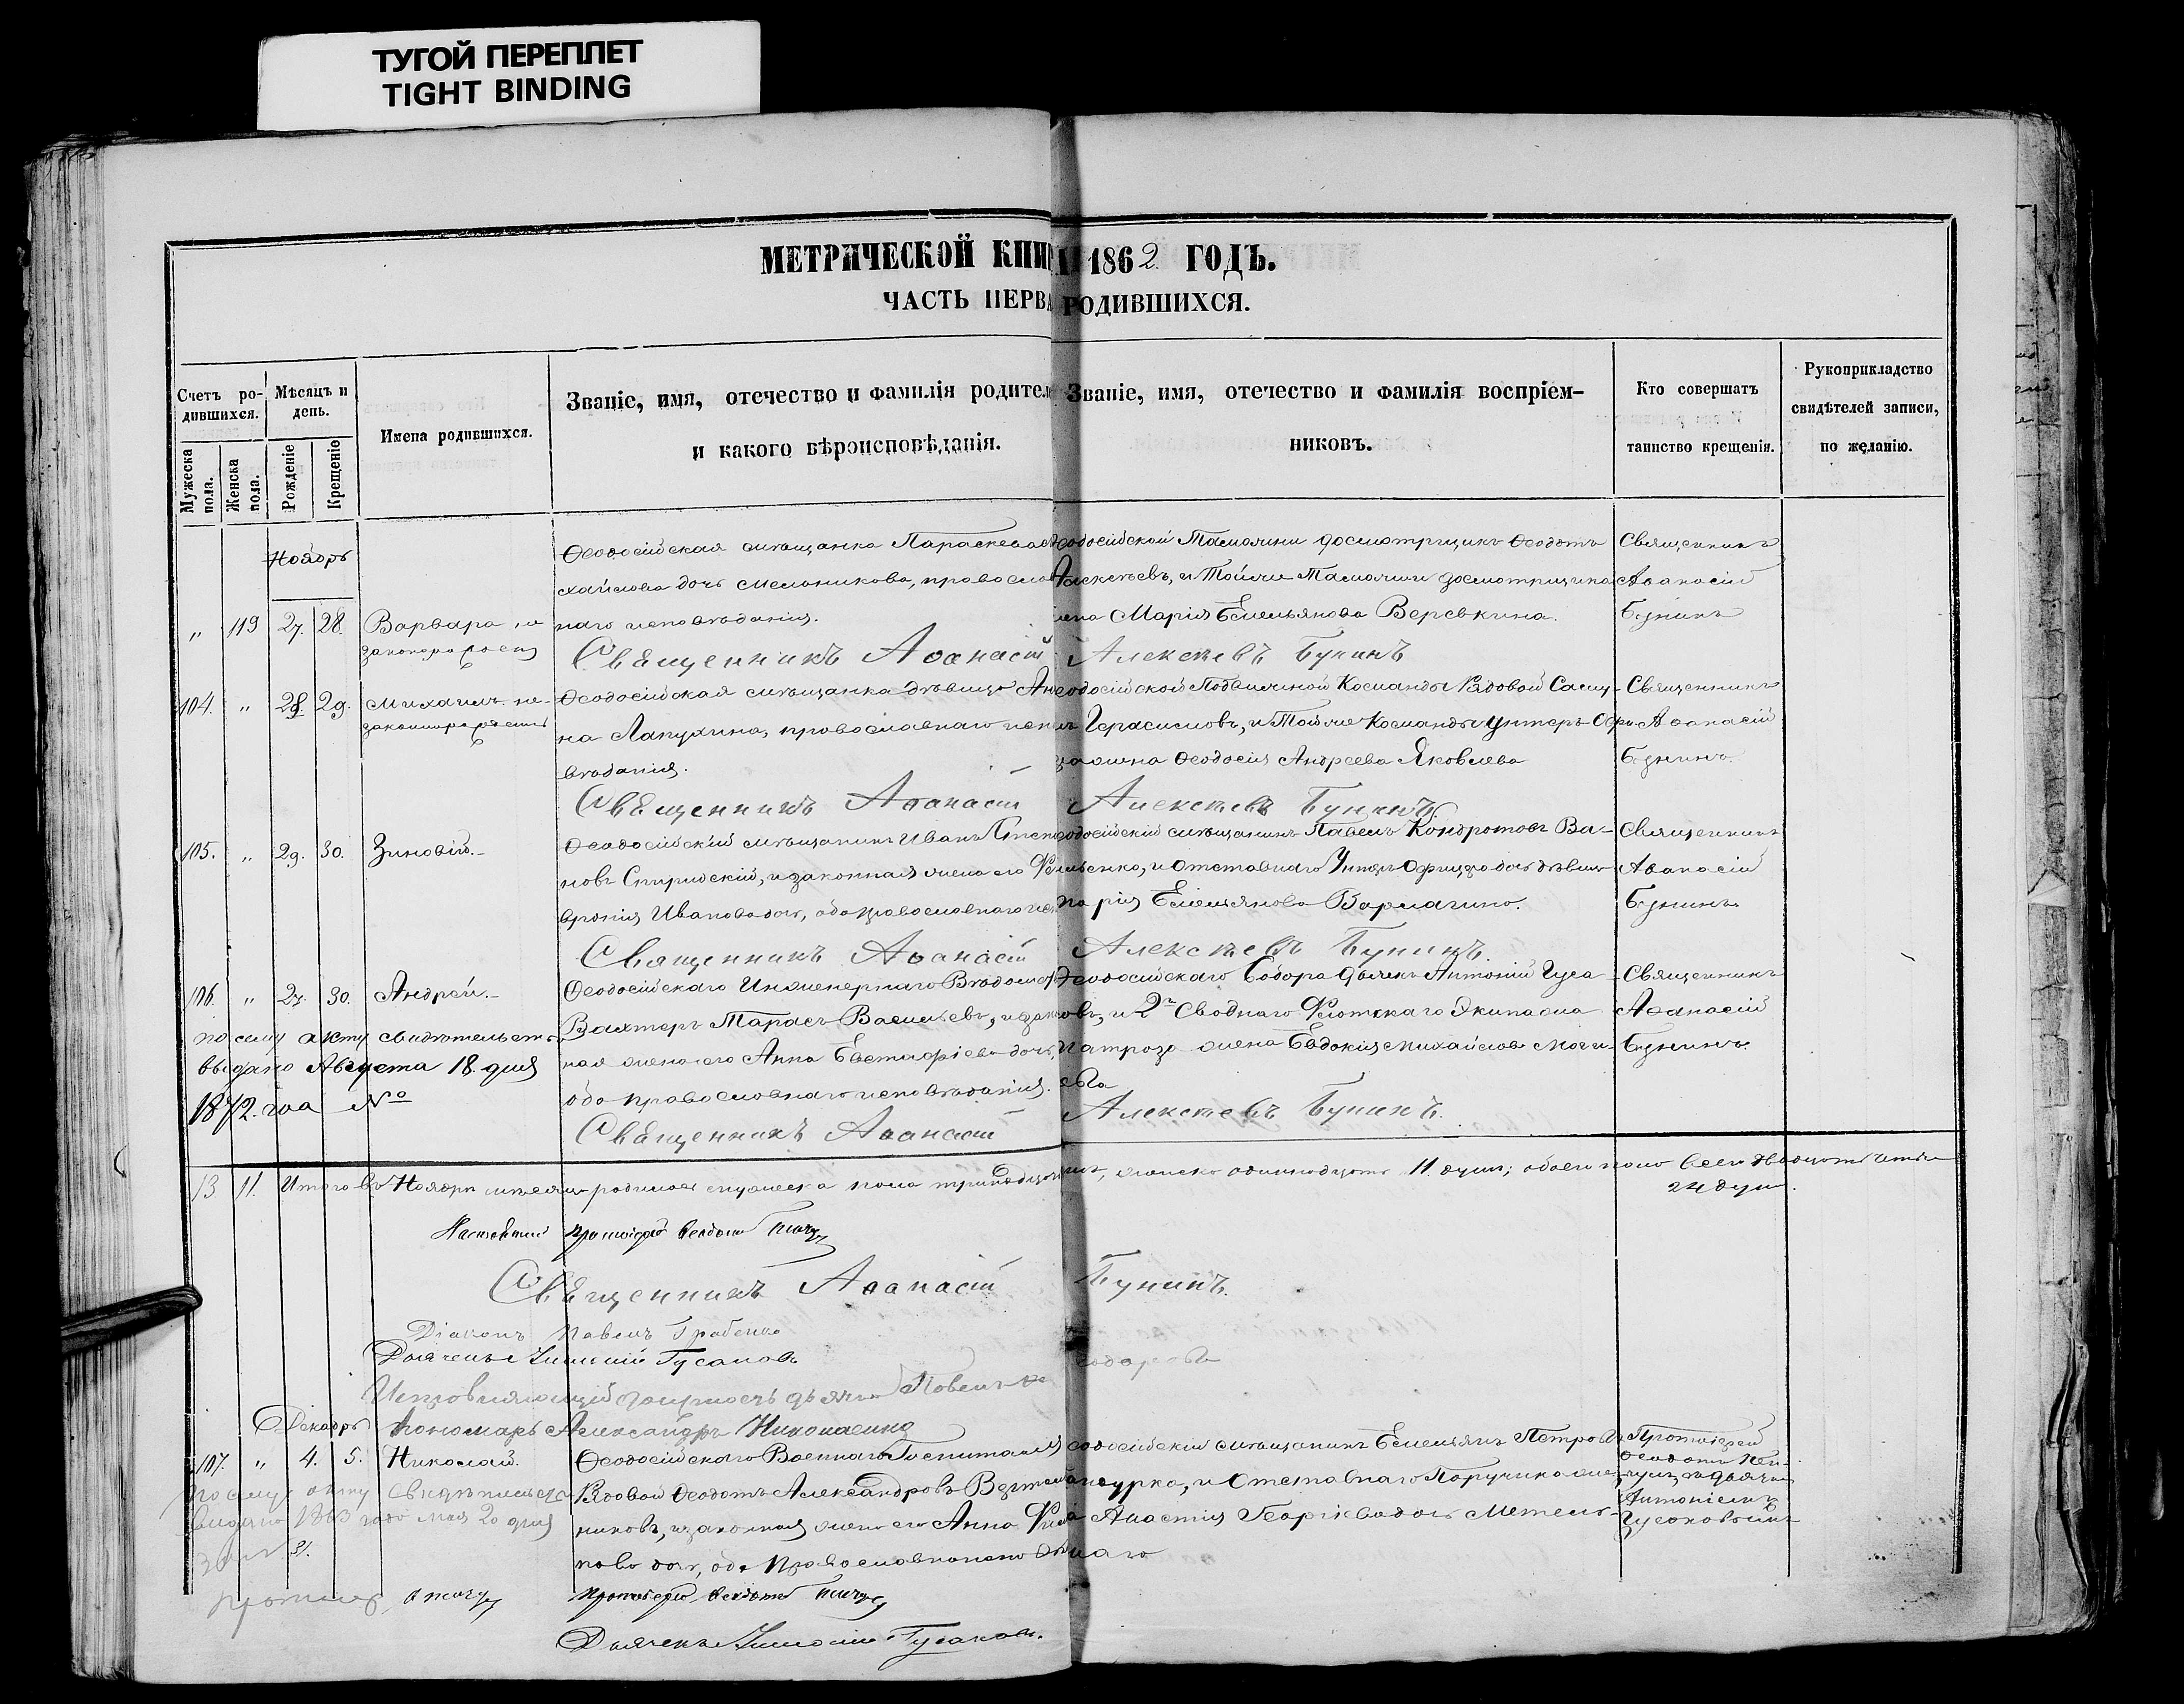 ТУГОЙ ПЕРЕПЛЕТ
TIGHT BINDING
МЕТРИЧЕСКОЙ КНИГИ 1862 ГОДЪ.
ЧАСТЬ ПЕРВА РОДИВШИХСЯ.
Счетъ ро-
дившихся.
Мужеска
пола.
Женска
пола.
Мѣсяцъ и
день.
Рожденіе
Крещеніе
Имена родившихся.
Званіе, имя, отечество и фамилія родител
и какого вѣроисповѣданія.
Званіе, имя, отечество и фамилія воспріем-
никовъ.
Кто совершатъ
таинство крещенія.
Рукоприкладство
свидѣтелей записи,
по желанію.
Ноябрь
„ 119 27. 28. Варвара не
законорожден
Ѳеодосійская мѣщанка Параскева
хайлова дочь Мельникова, православ
наго исповѣданія.
одосійской Таможни досмотрщикъ Ѳеодотъ
Алексѣевъ, и Тойже Таможни досмотрщика
жена Марія Емельянова Веревкина.
Священникъ
Аѳанасій
Бунинъ
Священникъ Аѳанасій Алексѣевъ Бунинъ
104. „ 28. 29. Михаилъ не-
законнорожден
Ѳеодосійская мѣщанка дѣвица Ан
на Лапухина, православнаго испо
вѣданія.
еодосійской Подвижной Команды Рядовой
Герасимовъ, и Тойже Команды Унтеръ-Оф
жена Ѳеодосія Андреева Яковлева
Священникъ
Аѳанасій
Бунинъ
Священникъ Аѳанасій Алексѣевъ Бунинъ
105. „ 29. 30. Зиновій.
Ѳеодосійскій мѣщанинъ Иванъ Степ
новъ Спиридскій, и законная жена его Фе
вронія Иванова дочь, оба православнаго исп
еодосійскій мѣщанинъ Павелъ Кондратовъ Ва-
сильенко, и Отставнаго Унтеръ-Офицера дочь дѣвица
Марія Емельянова Вармагина.
Священникъ
Аѳанасій
Бунинъ
Священникъ Аѳанасій Алексѣевъ Бунинъ.
106. „ 27. 30. Андрей.
Ѳеодосійскаго Инженернаго Вѣдомст
Вахтеръ Тарасъ Васильевъ, и закон
ная жена его Анна Евстафіева дочь,
оба православнаго исповѣданія.
Ѳеодосійскаго Собора дьячекъ Антоній Гуса-
ковъ, и 2го Своднаго Флотскаго Экипажа
Матроза жена Евдокія Михайлова
ева
Священникъ
Аѳанасій
Бунинъ
по сему акту свидѣтельство
выдано Августа 18 дня
1872. года №
Священникъ Аѳанасій Алексѣевъ Бунинъ.
13 11. Итого въ Ноябрѣ мѣсяцѣ родилось мужеска пола тринадцать, женска одинадцать 11 душъ; обоего пола всего двадцать четыре
24 души.
Настоятель Протоіерей Ѳеодотъ
Священникъ Аѳанасій Бунинъ.
Діаконъ Павелъ Грабенко
Дьячекъ Антоній Гусаковъ
Исправляющій должность дьячка Павелъ
Пономарь Александръ Николаенко
Декабрь
107. „ 4. 5. Николай.
Ѳеодосійскаго Военнаго Госпиталя
Рядовой Ѳеодотъ Александровъ
никовъ, и законная жена его Анна Фи
пова дочь, оба Православнаго
еодосійскій мѣщанинъ Емельянъ Петровъ
и Отставнаго Поручика
Анастія Георгіева дочь
Протоіерей
Ѳеодотъ
съ дьячкомъ
Антоніемъ
Гусаковымъ
по сему акту свидѣтельство
выдано 1863 года Мая 20 дня
за № 31.
Протоіерей Ѳеодотъ
Дьячекъ Антоній Гусаковъ.